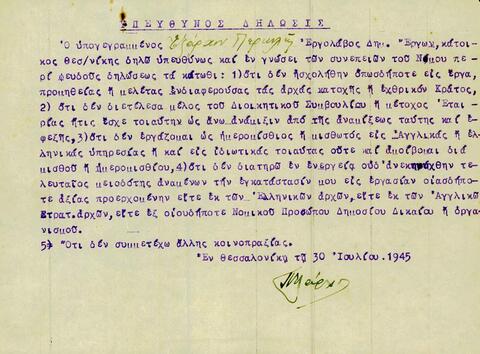 ΥΠΕΥΘΥΝΟΣ ΔΗΛΩΣΙΣ
Ὁ ὑπογεγραμμένος Ἐργολάβος Δημ. Ἔργων, κάτοι-
κος θεσ/νίκης δηλῶ ὑπευθύνως καί ἐν γνώσει τῶν συνεπειῶν τοῦ Νόμου πε
ρί ψευδοῦς δηλώσεως τά κάτωθι: 1)ὅτι δέν ἠσχολήθην ὁπωσδήποτε εἰς ἔργα,
προμηθείας ἤ μελέτας ἐνδιαφερούσας τάς ἀρχάς κατοχῆς ἤ ἐχθρικόν Κράτος,
2) ὅτι δέν διετέλεσα μέλος τοῦ Διοικητικοῦ Συμβουλίου ἤ μέτοχος Ἑται
ρίας ἥτις ἔσχε τοιαύτην ὡς ἄνω ἀνάμιξιν ἀπό τῆς ἀναμίξεως ταύτης καί ἐ
φεξῆς, 3)ὅτι δέν ἐργάζομαι ὡς ἡμερομίσθιος ἤ μισθωτός εἰς Ἀγγλικάς ἤ ἑ
λληνικάς ὑπηρεσίας ἤ καί εἰς ἰδιωτικάς τοιαύτας οὔτε καί ἀμοίβομαι διά
μισθοῦ ἤ ἡμερομισθίου, 4)ὅτι δέν διατηρῶ ἐν ἐνεργεία οὐδ
τελευταῖος μειοδότης ἀναμένων τήν ἐγκατάστασίν μου εἰς ἐργασίαν οἱασδήπο
τε ἀξίας προερχομένην εἴτε ἐκ τῶν Ἑλληνικῶν ἀρχῶν, εἴτε ἐκ τῶν Ἀγγλικῶν
Στρατ. ἀρχῶν, εἴτε ἐξ οἱουδήποτε Νομικοῦ Προσώπου Δημοσίου Δικαίου ἤ ὀργα-
νισμοῦ.
5) Ὅτι δέν συμμετέχω ἄλλης κοινοπραξίας.
Ἐν θεσσαλονίκη τῇ 30 Ἰουλίου. 1945